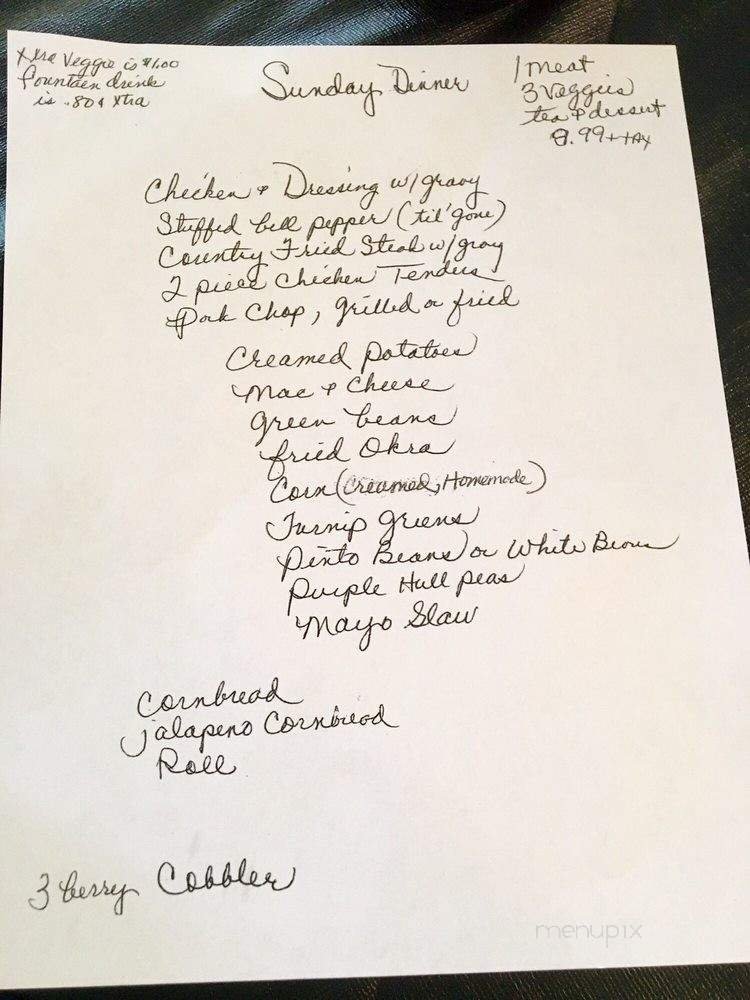 Xtra Veggie is $1.00
fountain drink
is .80¢ Xtra
Sunday Dinner
1 meat
3 Veggies
tea & dessert
9.99 + tax
Chicken & Dressing w/gravy
Stuffed bell pepper (til' gone)
Country Fried Steak w/gravy
2 piece Chicken Tenders
Pork Chop, grilled or fried
Creamed potatoes
Mac & Cheese
green beans
fried Okra
Corn (Creamed, Homemade)
Turnip greens
Pinto Beans or White Beans
Purple Hull peas
Mayo Slaw
Cornbread
jalapeno Cornbread
Roll
3 berry Cobbler
menupix